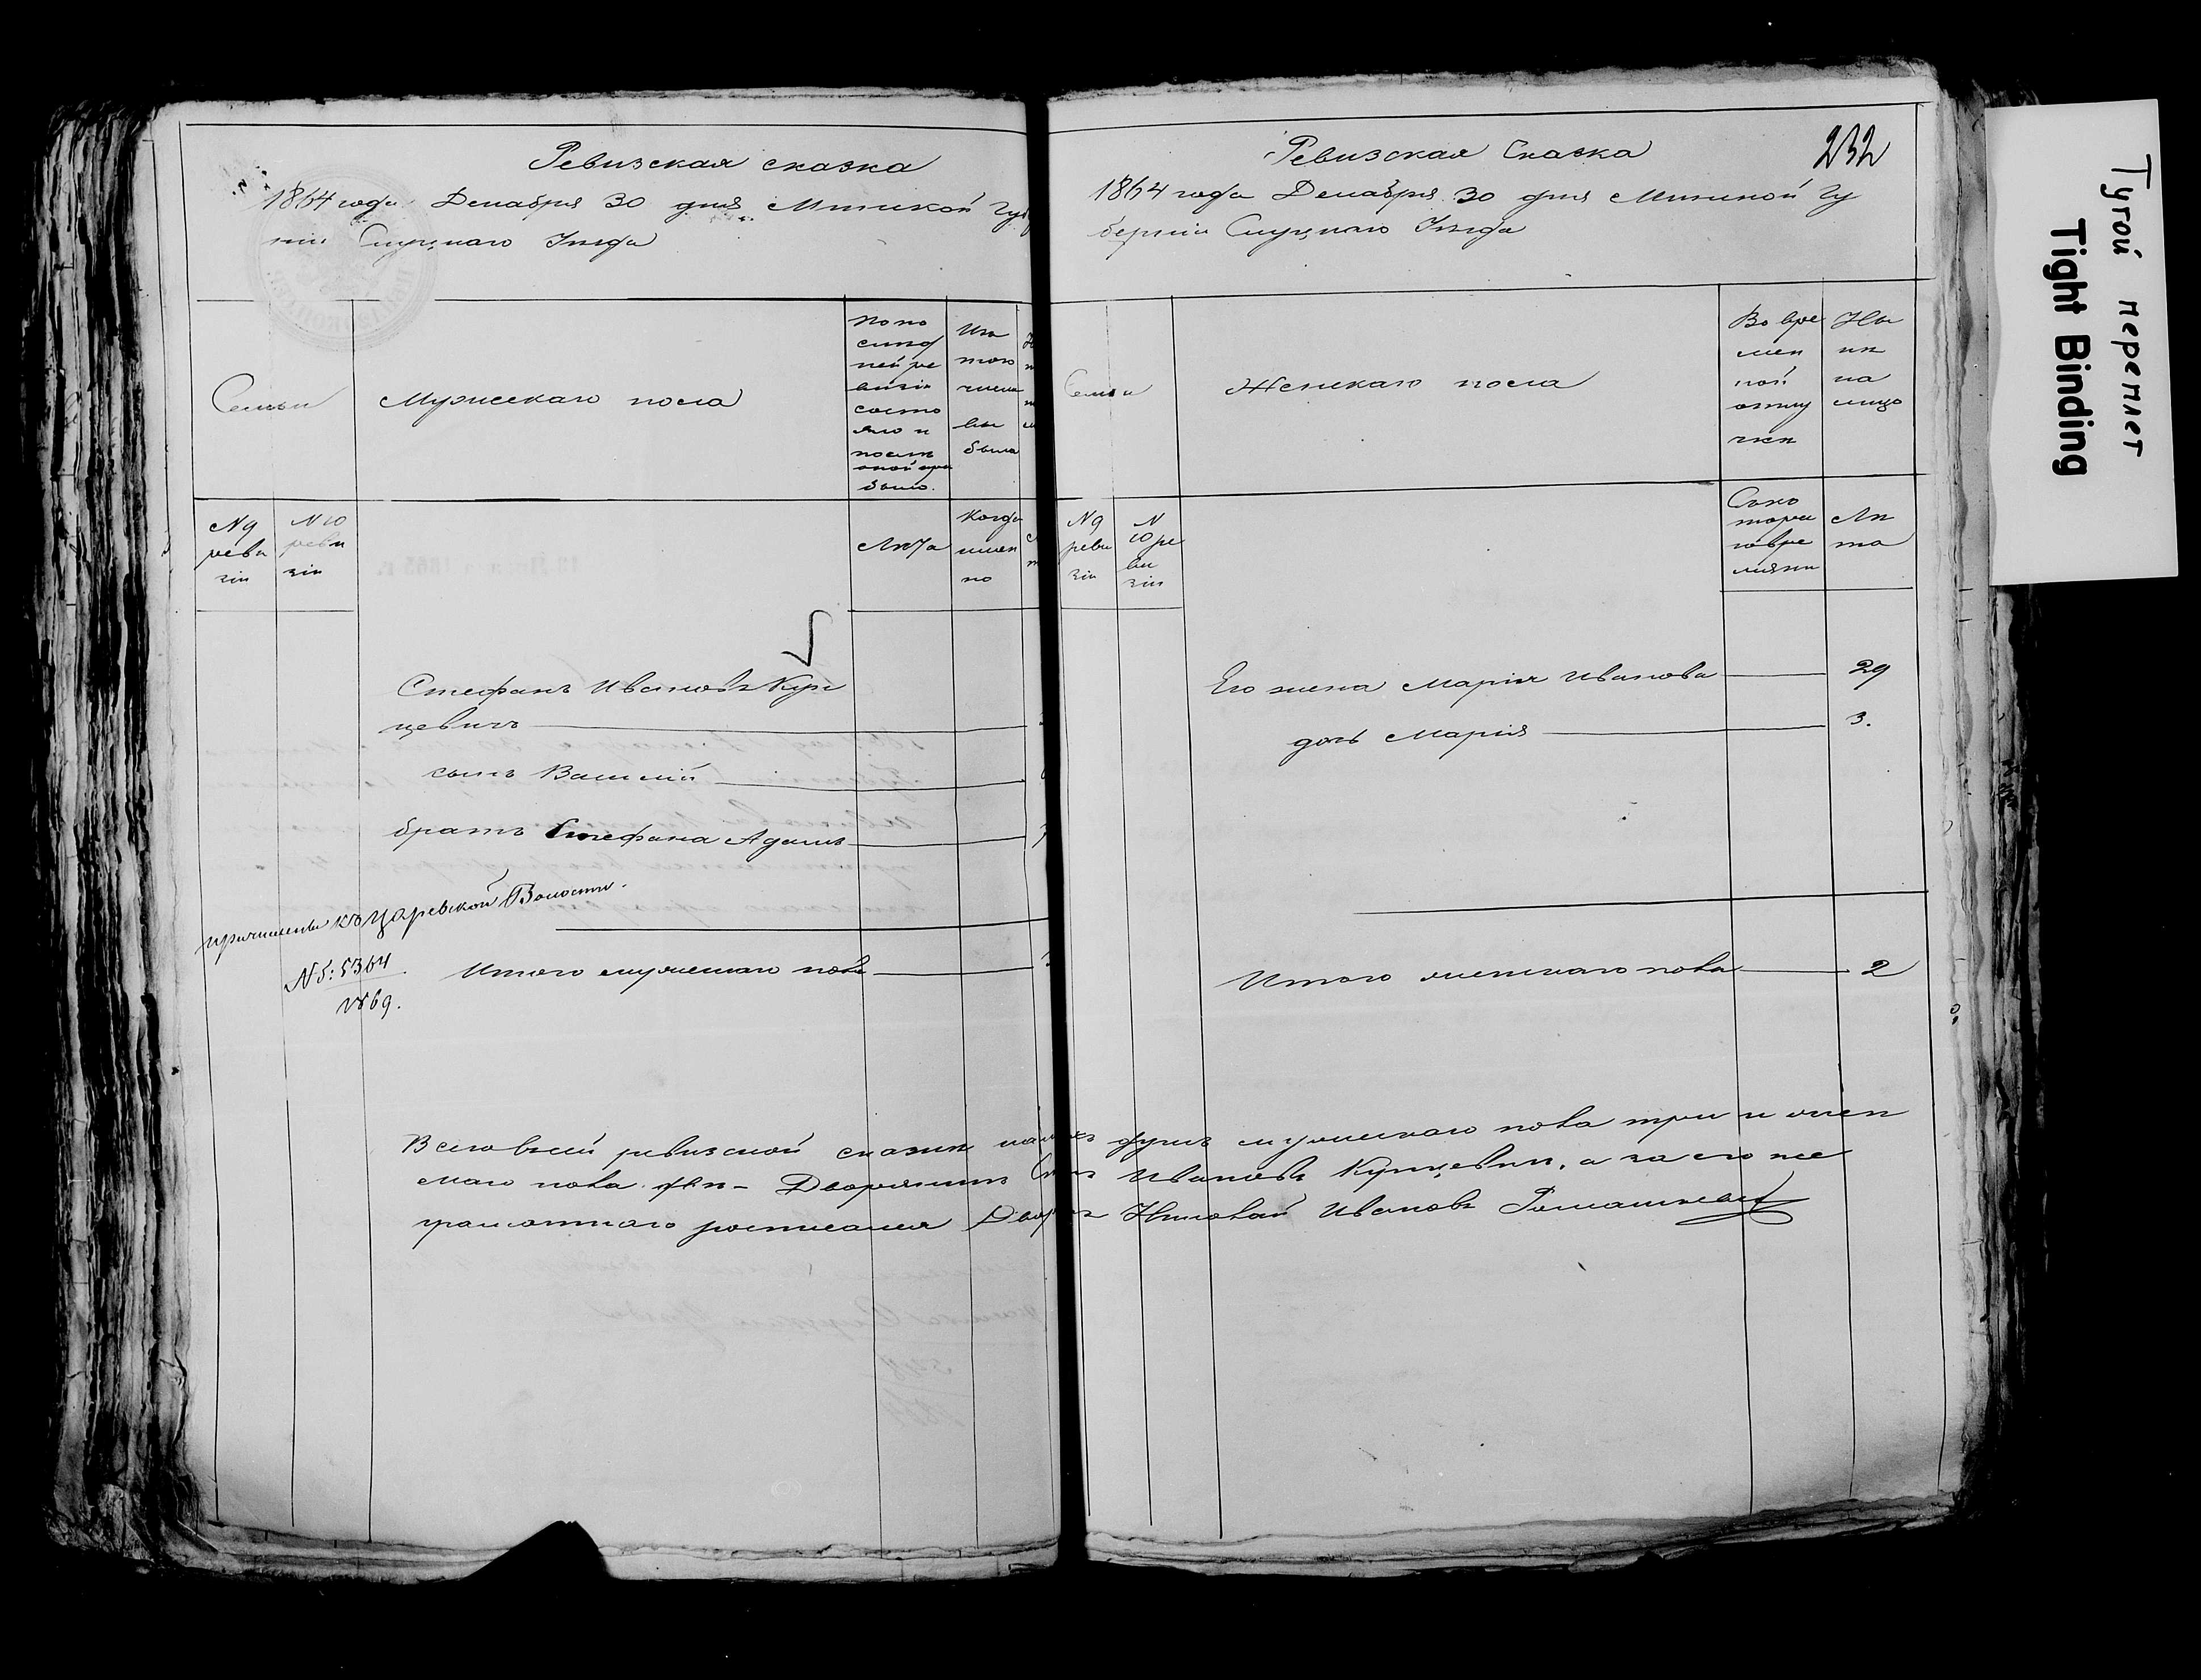 Ревизская сказка
1864 года Декабря 30 дня Минской Губ
нии Слуцкаго Уезда
Семьи
Мужескаго пола
По по
след
ней ре
визіи
состо
яло и
после
оной при
было.
Изъ
того
числа
вы
было
№ 9
реви
зіи
№ 10
реви
зіи
Лѣта
Когда
имен
но
Стефанъ Ивановъ Кун
цевичъ
сынъ Василій
братъ Стефана Адамъ
причислены къ Царевской Волости.
№ 5364
1869.
Итого мужескаго пола
Ревизская Сказка
232
1864 года Декабря 30 дня Минской Гу
берніи Слуцкаго Уѣзда
Семьи
Женскаго пола
Во вре
мен
ной
отлу
чкѣ
Ны
нѣ
на
лицо
№ 9
реви
зіи
№
10 ре
ви
зіи
Съ ко
тораго
време
ни
Лѣ
та
Его жена Марія Иванова 29
дочь Марія 3.
Итого женскаго пола 2
В сей ревизской сказке душъ мужескаго пола три и жен
скаго пола две Дворянинъ Ивановъ Кунцевич, а за его не
грамотнаго росписался Николай Ивановъ Ромашкевич
Тугой переплет
Tight Binding